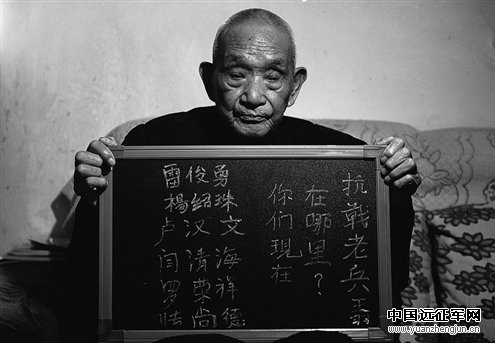 抗戰老兵
在哪里？
你們現在
雷俊勇
楊绍珠
卢汉文
闫清海
罗荣祥
尚德
中国远征军网
www.yuanzhengjun.cn